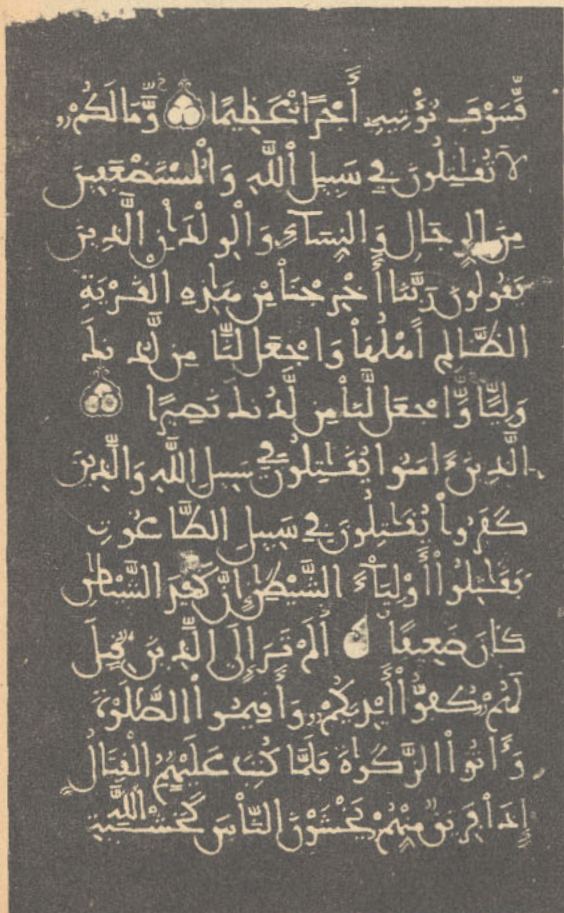 فَسَوْفَ نُؤْتِيهِ أَجْرًا عَظِيمًا وَمَا لَكُمْ
لَا تُقَٰتِلُونَ فِي سَبِيلِ اللَّهِ وَالْمُسْتَضْعَفِينَ
مِنَ الرِّجَالِ وَالنِّسَآءِ وَالْوِلْدَٰنِ الَّذِينَ
يَقُولُونَ رَبَّنَا أَخْرِجْنَا مِنْ هَٰذِهِ الْقَرْيَةِ
الظَّالِمِ أَهْلُهَا وَاجْعَل لَّنَا مِن لَّدُنكَ
وَلِيًّا وَاجْعَل لَّنَا مِن لَّدُنكَ نَصِيرًا
الَّذِينَ ءَامَنُوا يُقَٰتِلُونَ فِي سَبِيلِ اللَّهِ وَالَّذِينَ
كَفَرُوا يُقَٰتِلُونَ فِي سَبِيلِ الطَّاغُوتِ
فَقَٰتِلُوا أَوْلِيَآءَ الشَّيْطَٰنِ إِنَّ كَيْدَ الشَّيْطَٰنِ
كَانَ ضَعِيفًا أَلَمْ تَرَ إِلَى الَّذِينَ قِيلَ
لَهُمْ كُفُّوا أَيْدِيَكُمْ وَأَقِيمُوا الصَّلَوٰةَ
وَءَاتُوا الزَّكَوٰةَ فَلَمَّا كُتِبَ عَلَيْهِمُ الْقِتَالُ
إِذَا فَرِيقٌ مِّنْهُمْ يَخْشَوْنَ النَّاسَ كَخَشْيَةِ اللَّهِ